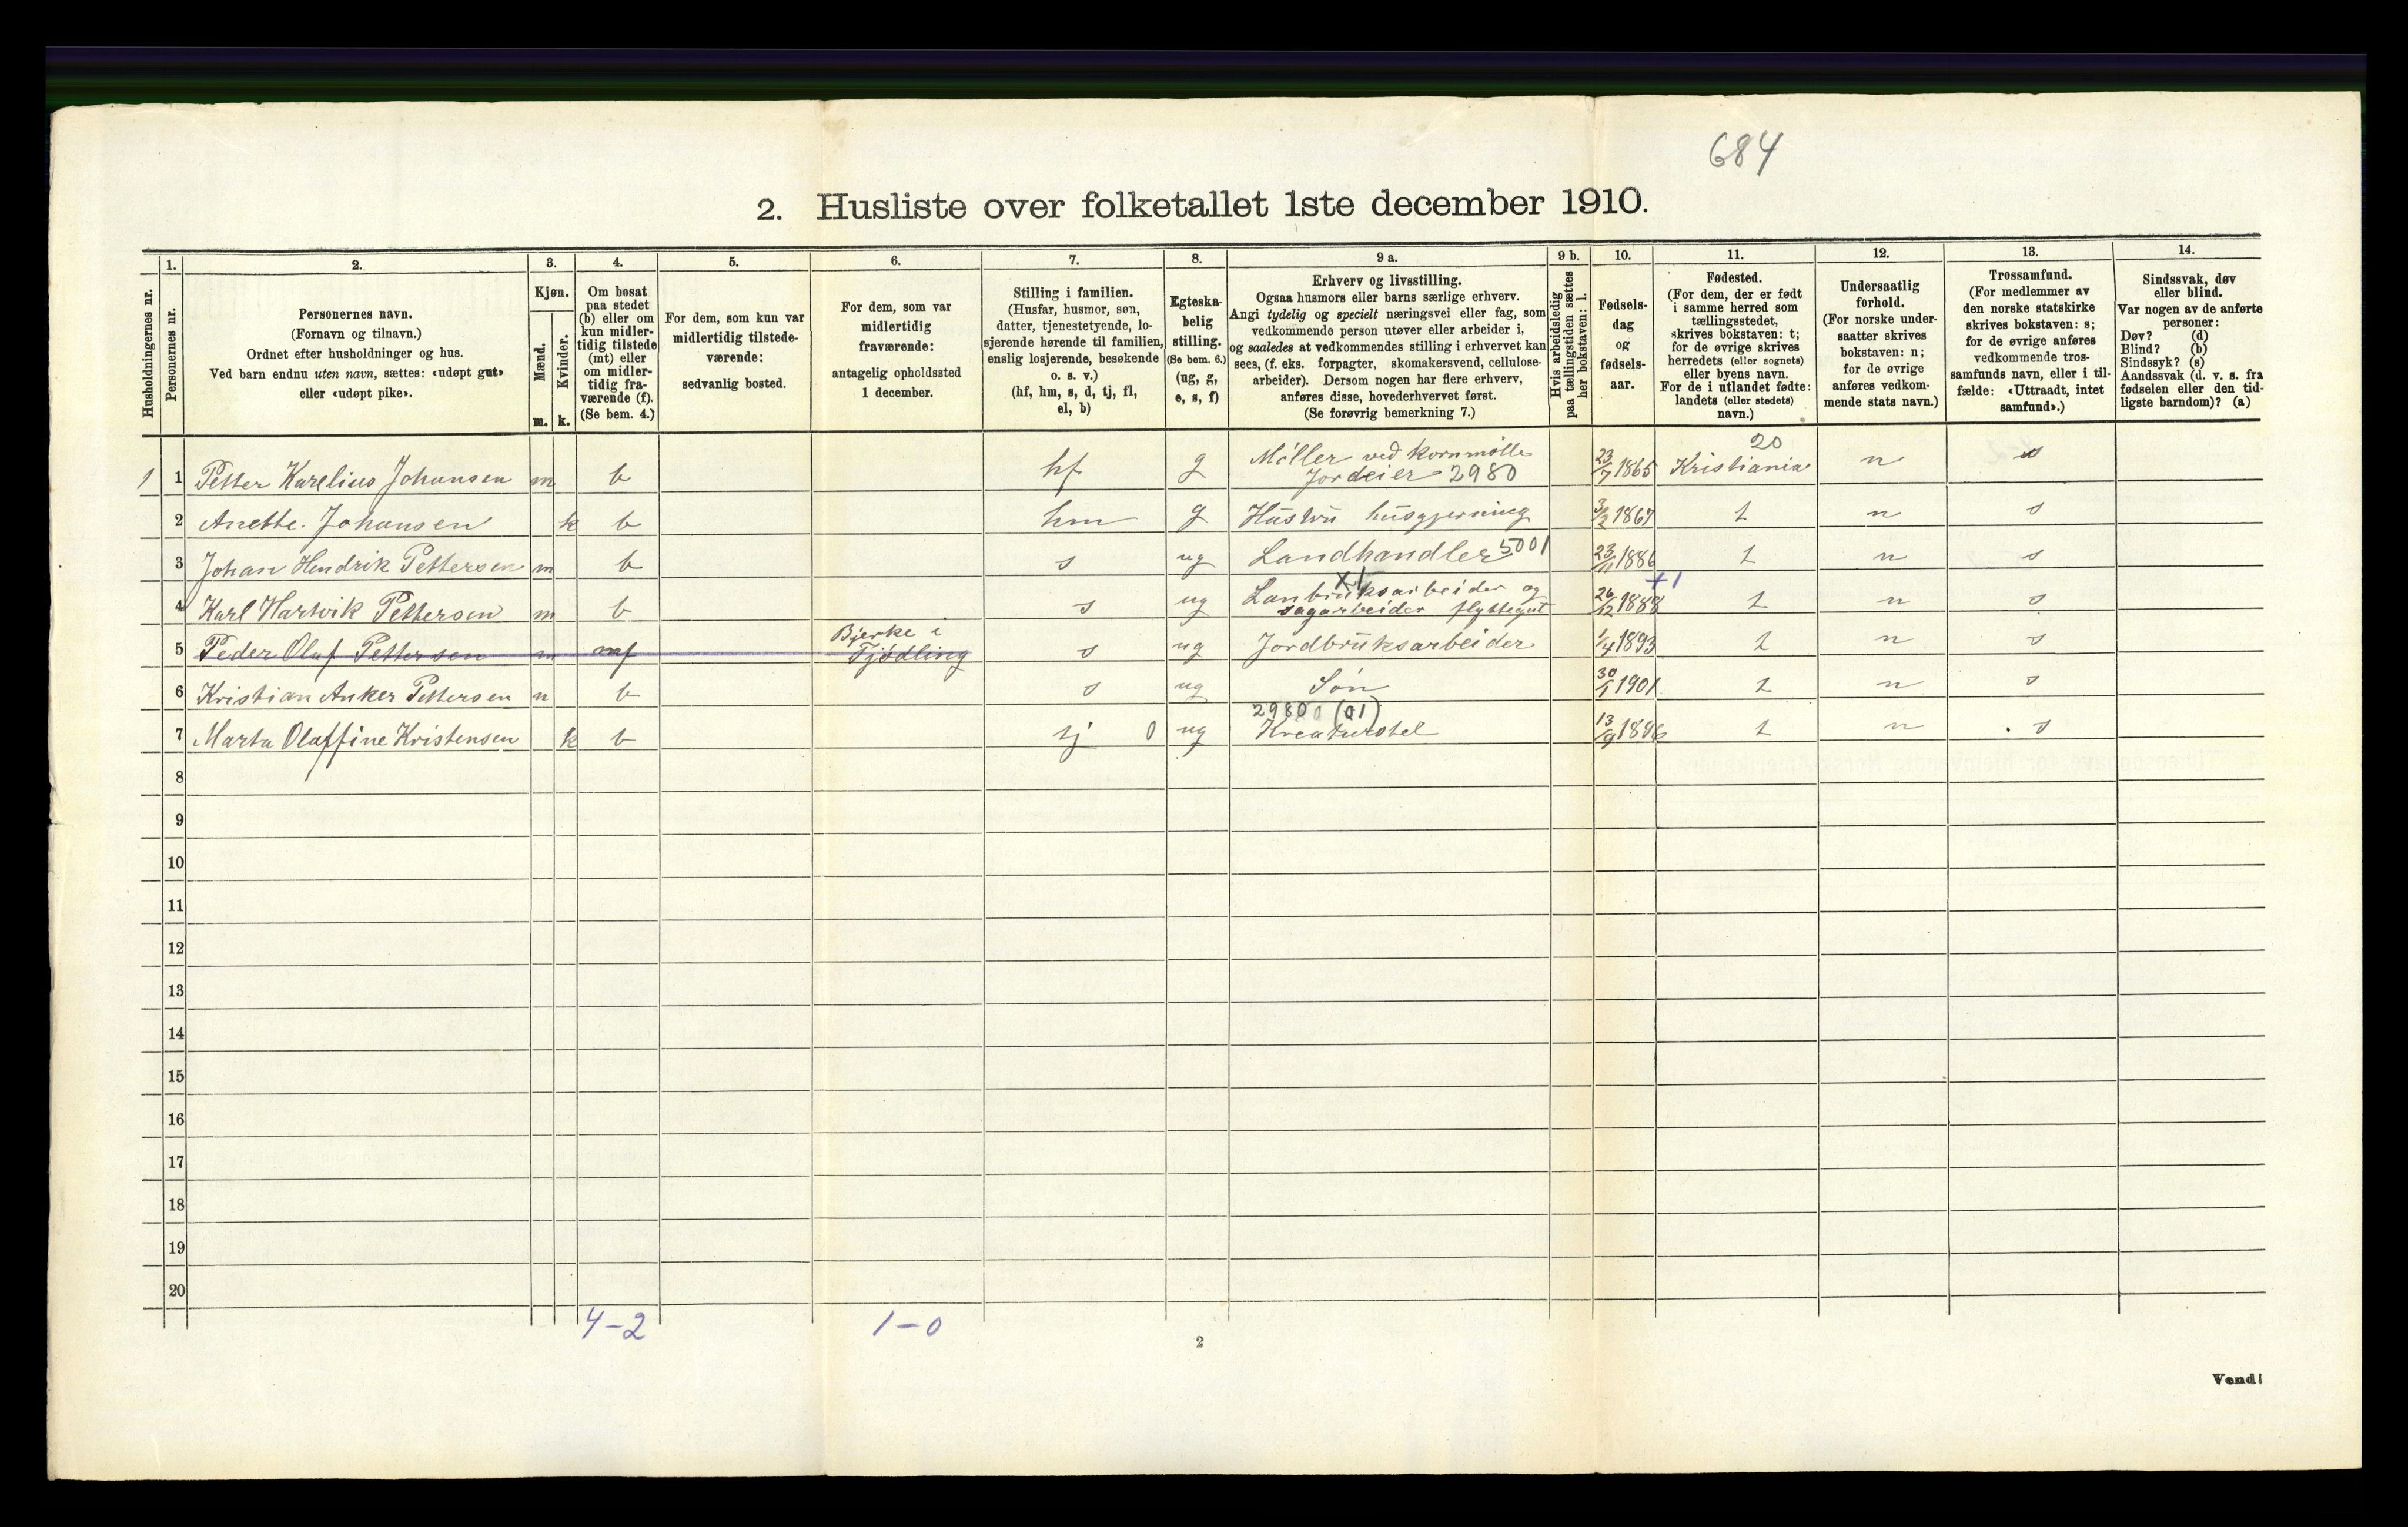 684
2. Husliste over folketallet 1ste december 1910.
Husholdningernes nr.
1.
Personernes nr.
2.
Personernes navn.
(Fornavn og tilnavn.)
Ordnet efter husholdninger og hus.
Ved barn endnu uten navn, sættes: «udøpt gut»
eller «udøpt pike».
3.
Kjøn.
Mænd.
Kvinder.
m. k.
4.
Om bosat
paa stedet
(b) eller om
kun midler-
tidig tilstede
(mt) eller
om midler-
tidig fra-
værende (f).
(Se bem. 4.)
5.
For dem, som kun var
midlertidig tilstede-
værende:
sedvanlig bosted.
6.
For dem, som var
midlertidig
fraværende:
antagelig opholdssted
1 december.
7.
Stilling i familien.
(Husfar, husmor, søn,
datter, tjenestetyende, lo-
sjerende hørende til familien,
enslig losjerende, besøkende
o. s. v.)
(hf, hm, s, d, tj, fl,
el, b)
8.
Egteska-
belig
stilling.
(Se bem. 6.)
(ug, g,
e, s, f)
9 a.
Erhverv og livsstilling.
Ogsaa husmors eller barns særlige erhverv.
Angi tydelig og specielt næringsvei eller fag, som
vedkommende person utøver eller arbeider i,
og saaledes at vedkommendes stilling i erhvervet kan
sees, (f. eks. forpagter, skomakersvend, cellulose-
arbeider). Dersom nogen har flere erhverv,
anføres disse, hovederhvervet først.
(Se forøvrig bemerkning 7.)
9 b.
Hvis arbeidsledig
paa tællingstiden sættes
her bokstaven: l.
10.
Fødsels-
dag
og
fødsels-
aar.
11.
Fødested.
(For dem, der er født
i samme herred som
tællingsstedet,
skrives bokstaven: t;
for de øvrige skrives
herredets (eller sognets)
eller byens navn.
For de i utlandet fødte:
landets (eller stedets)
navn.)
12.
Undersaatlig
forhold.
(For norske under-
saatter skrives
bokstaven: n;
for de øvrige
anføres vedkom-
mende stats navn.)
13.
Trossamfund.
(For medlemmer av
den norske statskirke
skrives bokstaven: s;
for de øvrige anføres
vedkommende tros-
samfunds navn, eller i til-
fælde: «Uttraadt, intet
samfund».)
14.
Sindssvak, døv
eller blind.
Var nogen av de anførte
personer:
Døv? (d)
Blind? (b)
Sindssyk? (s)
Aandssvak (d. v. s. fra
fødselen eller den tid-
ligste barndom)? (a)
1 1 Petter Karelius Johansen m b hf g Møller ved kornmølle Jordeier 2980 23/7 1865 20 Kristiania n s
2 Anette. Johansen k b hm g Hustru husgjerning 3/2 1867 t n s
3 Johan Hendrik Pettersen m b s ug Landhandler 5001 23/11 1886 t n s
4 Karl Hartvik Pettersen m b s ug Lanbruksarbeider og sagarbeider flyttegut x1 26/12 1888 +1 t n s
5 Peder Olaf Pettersen m mf Bjerke i Tjødling s ug Jordbruksarbeider 1/4 1893 t n s
6 Kristian Anker Pettersen m b s ug Søn 30/1 1901 t n s
7 Marta Olaffine Kristensen k b tj 0 ug 29800 (01) Kreaturstel 13/9 1896 t n s
8
9
10
11
12
13
14
15
16
17
18
19
20
4-2
1-0
2
Vend!